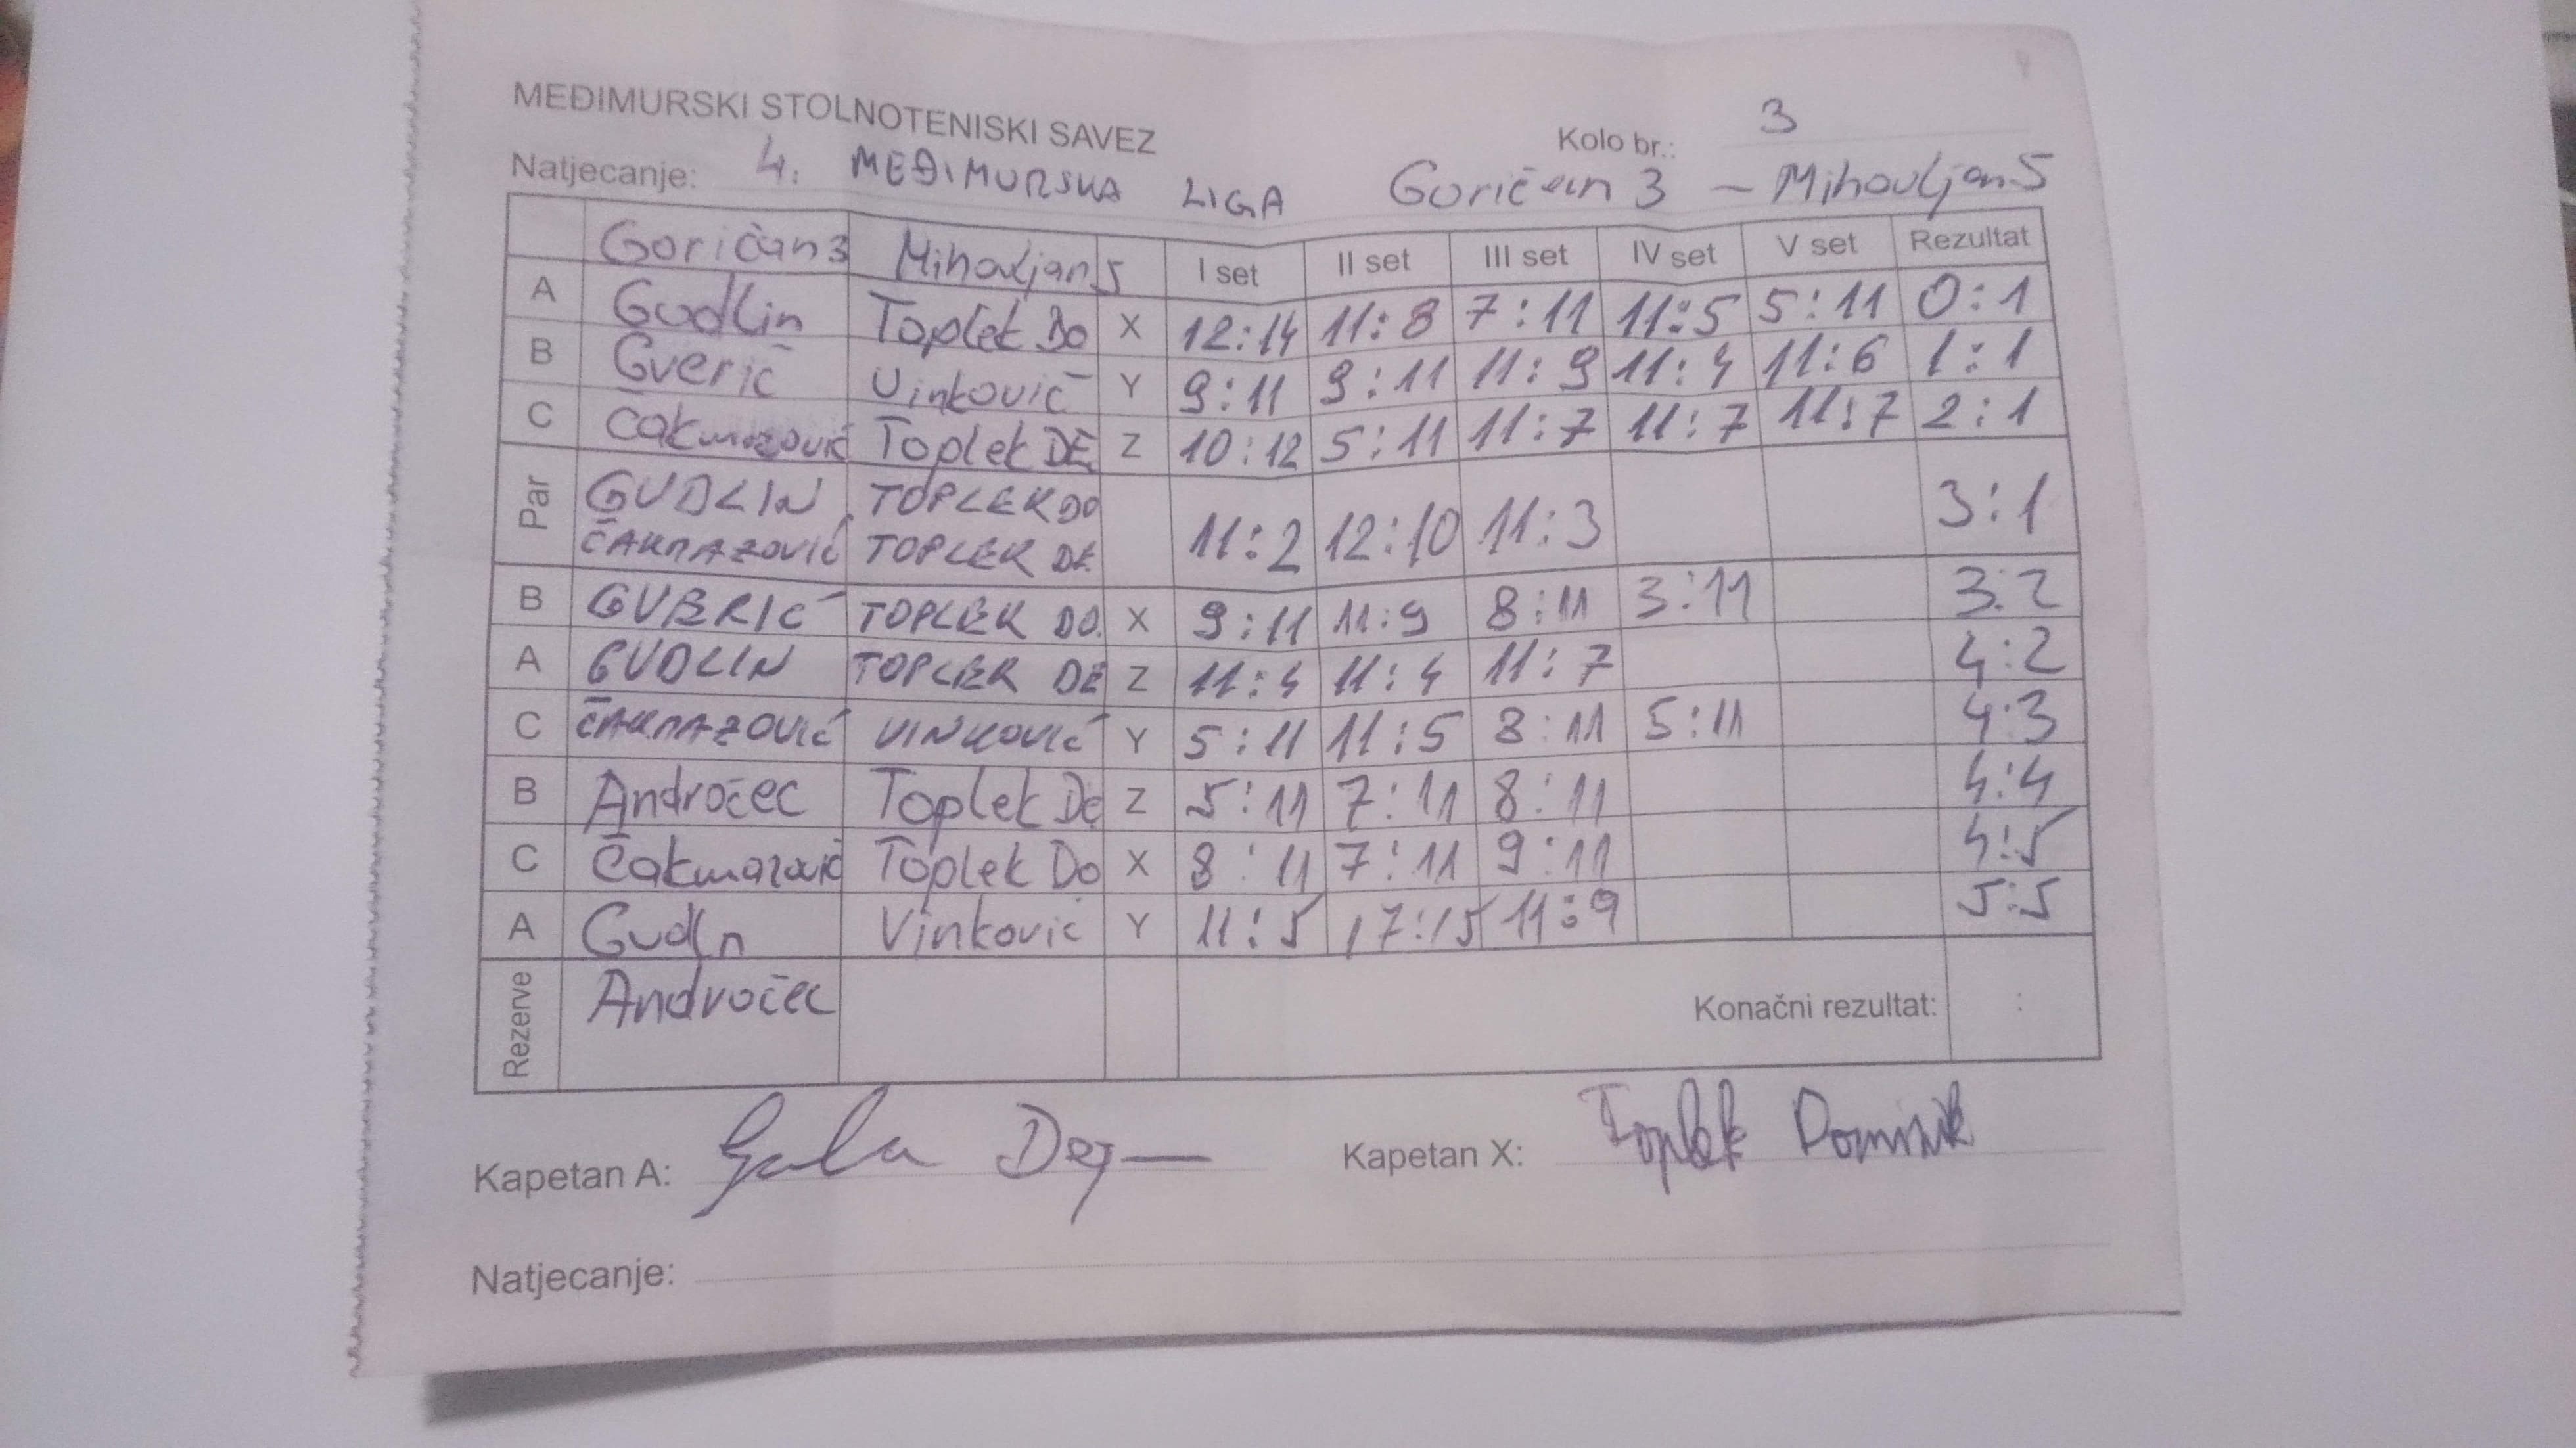 MEĐIMURSKI STOLNOTENISKI SAVEZ
Kolo br.: 3
Natjecanje: 4. MEĐIMURSKA LIGA Goričan 3 - Mihovljan 5
Goričan 3 Mihovljan 5 I set II set III set IV set V set Rezultat
A Gudlin Toplek Do X 12:14 11:8 7:11 11:5 5:11 0:1
B Gverić Vinković Y 9:11 9:11 11:9 11:4 11:6 1:1
C Čakmazović Toplek DE Z 10:12 5:11 11:7 11:7 11:7 2:1
Par GUDLIN TOPLEK DO 11:2 12:10 11:3 3:1
ČAKMAZOVIĆ TOPLEK DE
B GVERIĆ TOPLEK DO. X 9:11 11:9 8:11 3:11 3:2
A GUDLIN TOPLEK DE Z 11:4 11:4 11:7 4:2
C ČAKMAZOVIĆ VINKOVIĆ Y 5:11 11:5 8:11 5:11 4:3
B Andročec Toplek De Z 5:11 7:11 8:11 4:4
C Čakmazović Toplek Do X 8:11 7:11 9:11 4:5
A Gudln Vinković Y 11:5 17:15 11:9 5:5
Rezerve Andročec Konačni rezultat: :
Kapetan A: Kapetan X: Toplek Dominik
Natjecanje: